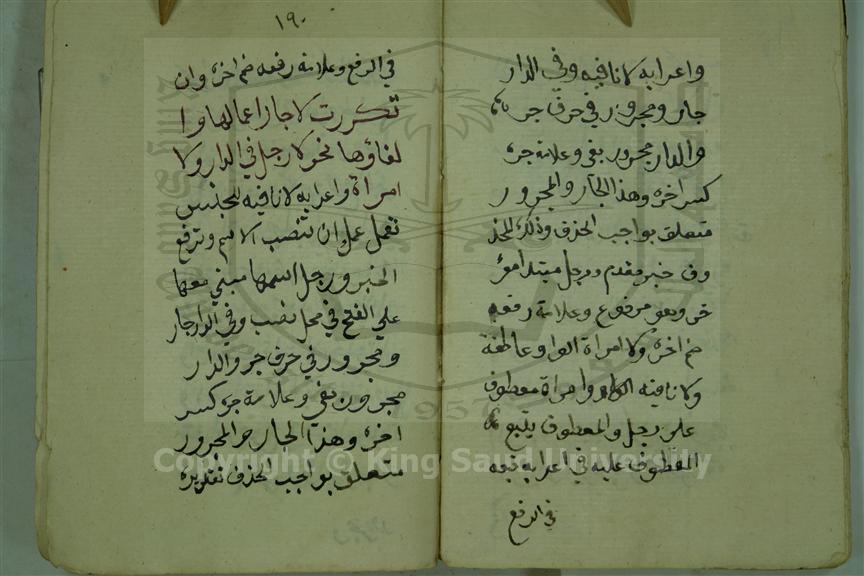 واعرابه لا نافيه وفي الدار
جار ومجرور في حرف جر
والدار مجرور بفي وعلامة جره
كسر اخره وهذا الجار والمجرور
متعلق بواجب الحذف وذلك المحذ
وف خبر مقدم ورجل مبتدا مؤ
خر وهو مرفوع وعلامة رفعه
ضم اخره ولا امراة الواو عاطفة
ولا نافيه وامراة معطوف
على رجل والمعطوف يتبع
المعطوف عليه في اعرابه تبعه
في الرفع
١٩٠
في الرفع وعلامة رفعه ضم اخره وان
تكررت لا جاز اعمالها وا
لغاؤها نحو لا رجل في الدار ولا
امراة واعرابه لا نافيه للجنس
تعمل عمل ان تنصب الاسم وترفع
الخبر ورجل اسمها مبني معها
علي الفتح في محل نصب وفي الدار جار
ومجرور في حرف جر والدار
مجرور بفي وعلامة جره كسر
اخره وهذا الجار والمجرور
متعلق بواجب الحذف تقديره
Copyright © King Saud University
1957